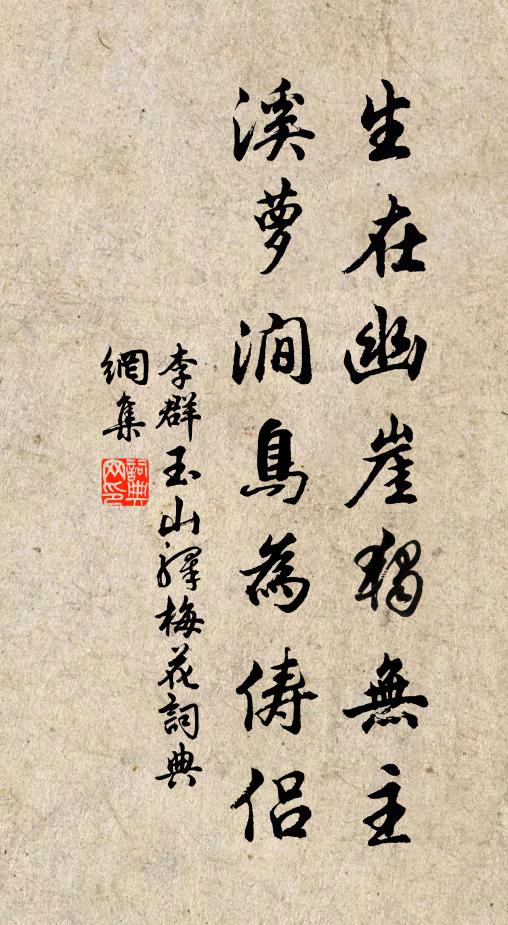 生在幽崖獨無主
溪夢澗鳥為儔侶
李群玉山驛梅花詞典
網集
詞典網印